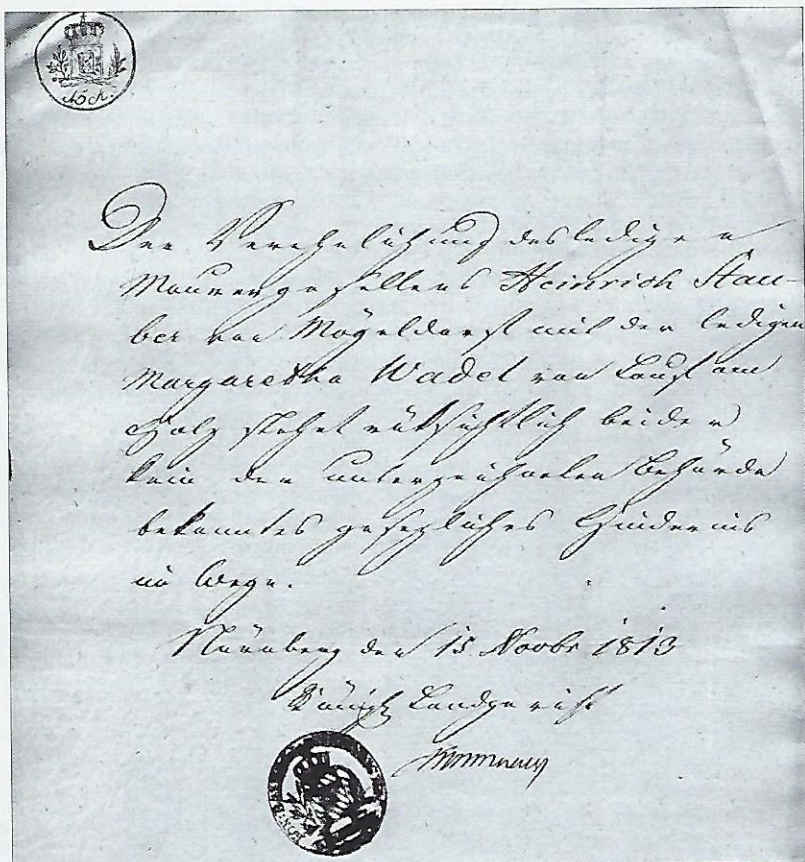 15 x.
Der Verehelichung des ledigen
Maurergesellens Heinrich Stau-
ber von Mögeldorf mit der ledigen
Margaretha Wadel von Lauf am
Holz stehet rüksichtlich beider
kein der unterzeichneten Behörde
bekanntes gesezliches Hindernis
im Wege.
Nürnberg den 15 Novbr 1813
Königl Landgericht